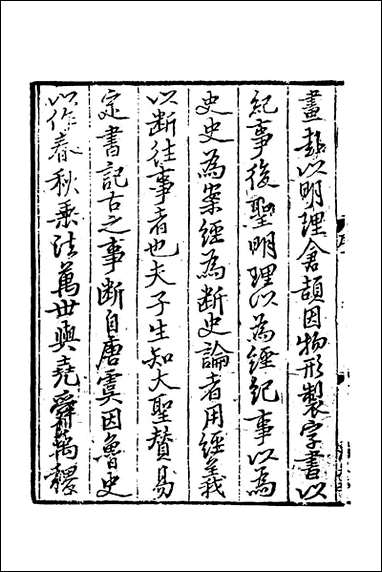 畫卦以明理倉頡因物形製字書以
紀事後聖明理以為經紀事以為
史史為案經為斷史論者用經義
以斷往事者也夫子生知大聖賛易
定書記古之事斷自唐虞因魯史
以作春秋垂法萬世與堯舜禹稷